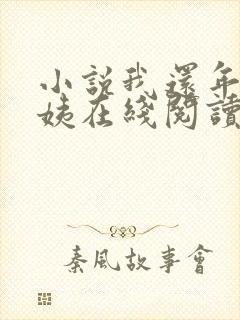 小說我還年
姨在綫閱讀
秦風故事會